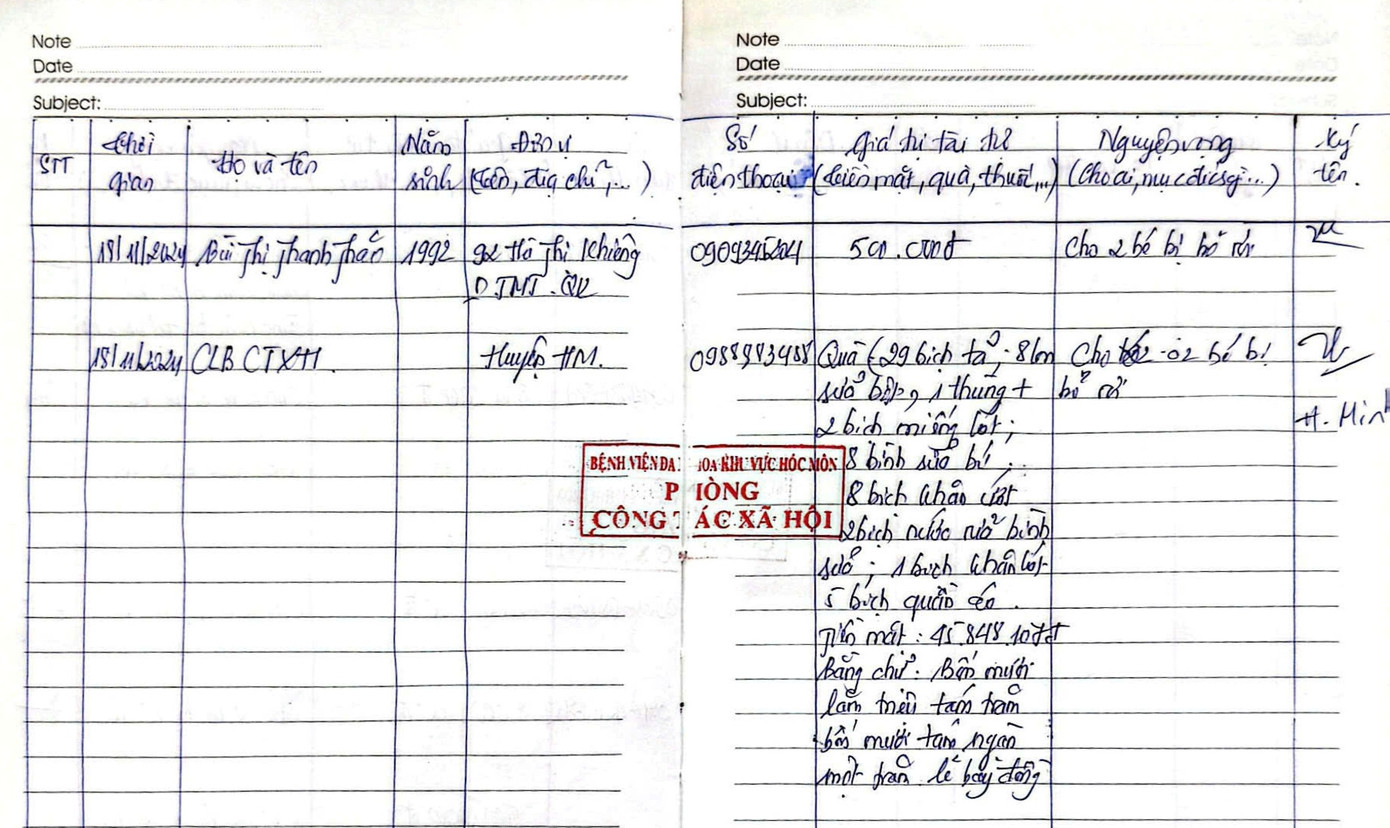 Note
Date
Subject:
Note
Date
Subject:
STT
Thời gian
Họ và tên
Năm sinh
Đơn vị
(tên, địa chỉ,...)
Số điện thoại
Giá trị tài trợ
(tiền mặt, quà, thuốc,...)
Nguyện vọng
(Cho ai, mục đích gì...)
Ký tên.
18/11/2024 Bùi Thị Thanh Thắn 1992 92 Hà Thị Khiêng
P. TMT. Q12
500.000đ
Cho 2 bé bị bỏ rơi
18/11/2024 CLB CTXH. Huyện HM.
Quà (29 bịch tã; 8 lon
sữa bột, 1 thùng +
2 bịch miếng lót;
8 bình sữa bú;
8 bịch khăn ướt
2 bịch nước rửa bình
sữa; 1 bịch khăn lót
5 bịch quần áo.
Tiền mặt: 45.848.107đ
Bằng chữ: Bốn mươi
lăm triệu tám trăm
bốn mươi tám ngàn
một trăm lẻ bảy đồng
Cho 02 bé bị
bỏ rơi
H. Minh
BỆNH VIỆN ĐA KHOA KHU VỰC HÓC MÔN
PHÒNG
CÔNG TÁC XÃ HỘI